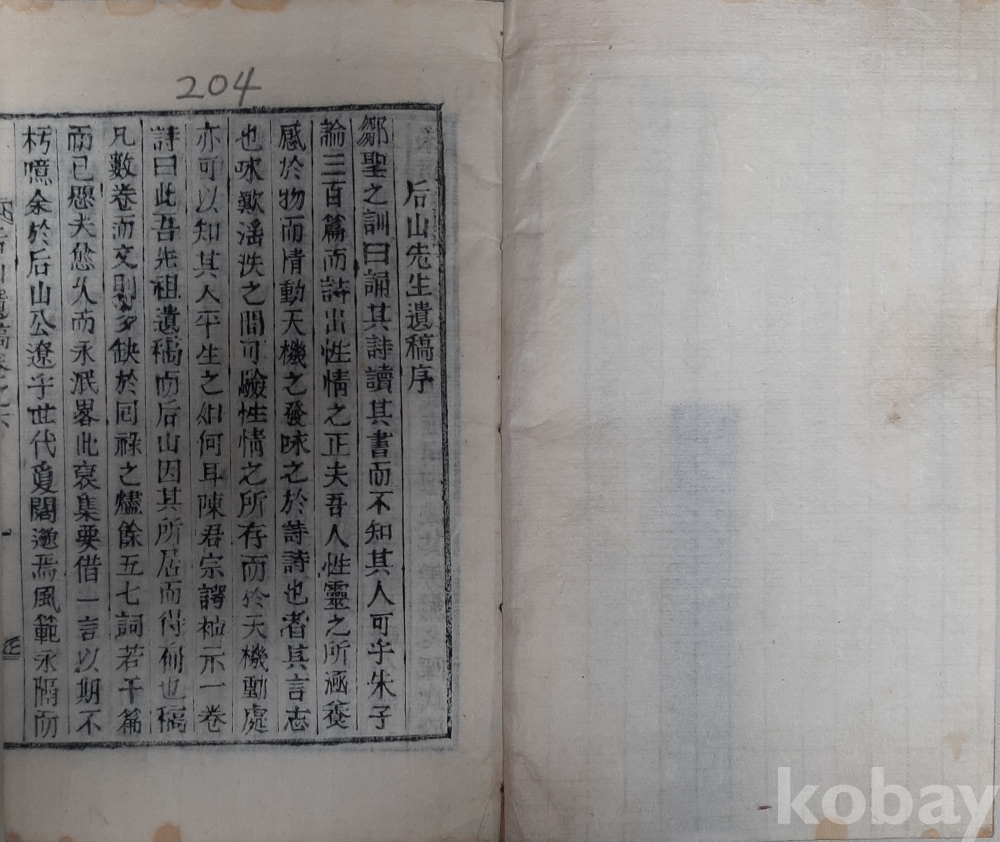 204
后山先生遺稿序
鄒聖之訓曰誦其詩讀其書而不知其人可乎朱子
論三百篇而詩出性情之正夫吾人性靈之所涵養
感於物而情動天機之發咏之於詩詩也者其言志
也咏歎滛泆之間可驗性情之所存而於天機動處
亦可以知其人平生之如何耳陳君宗諤袖示一卷
詩曰此吾先祖遺稿而后山因其所居而得稱也稿
凡數卷而文則多缺於回祿之燼餘五七詞若干篇
而已愳夫愈久而永泯畧此裒集要借一言以期不
朽噫余於后山公遼乎世代敻闊邈焉風範永隔而
后山遺稿
kobay